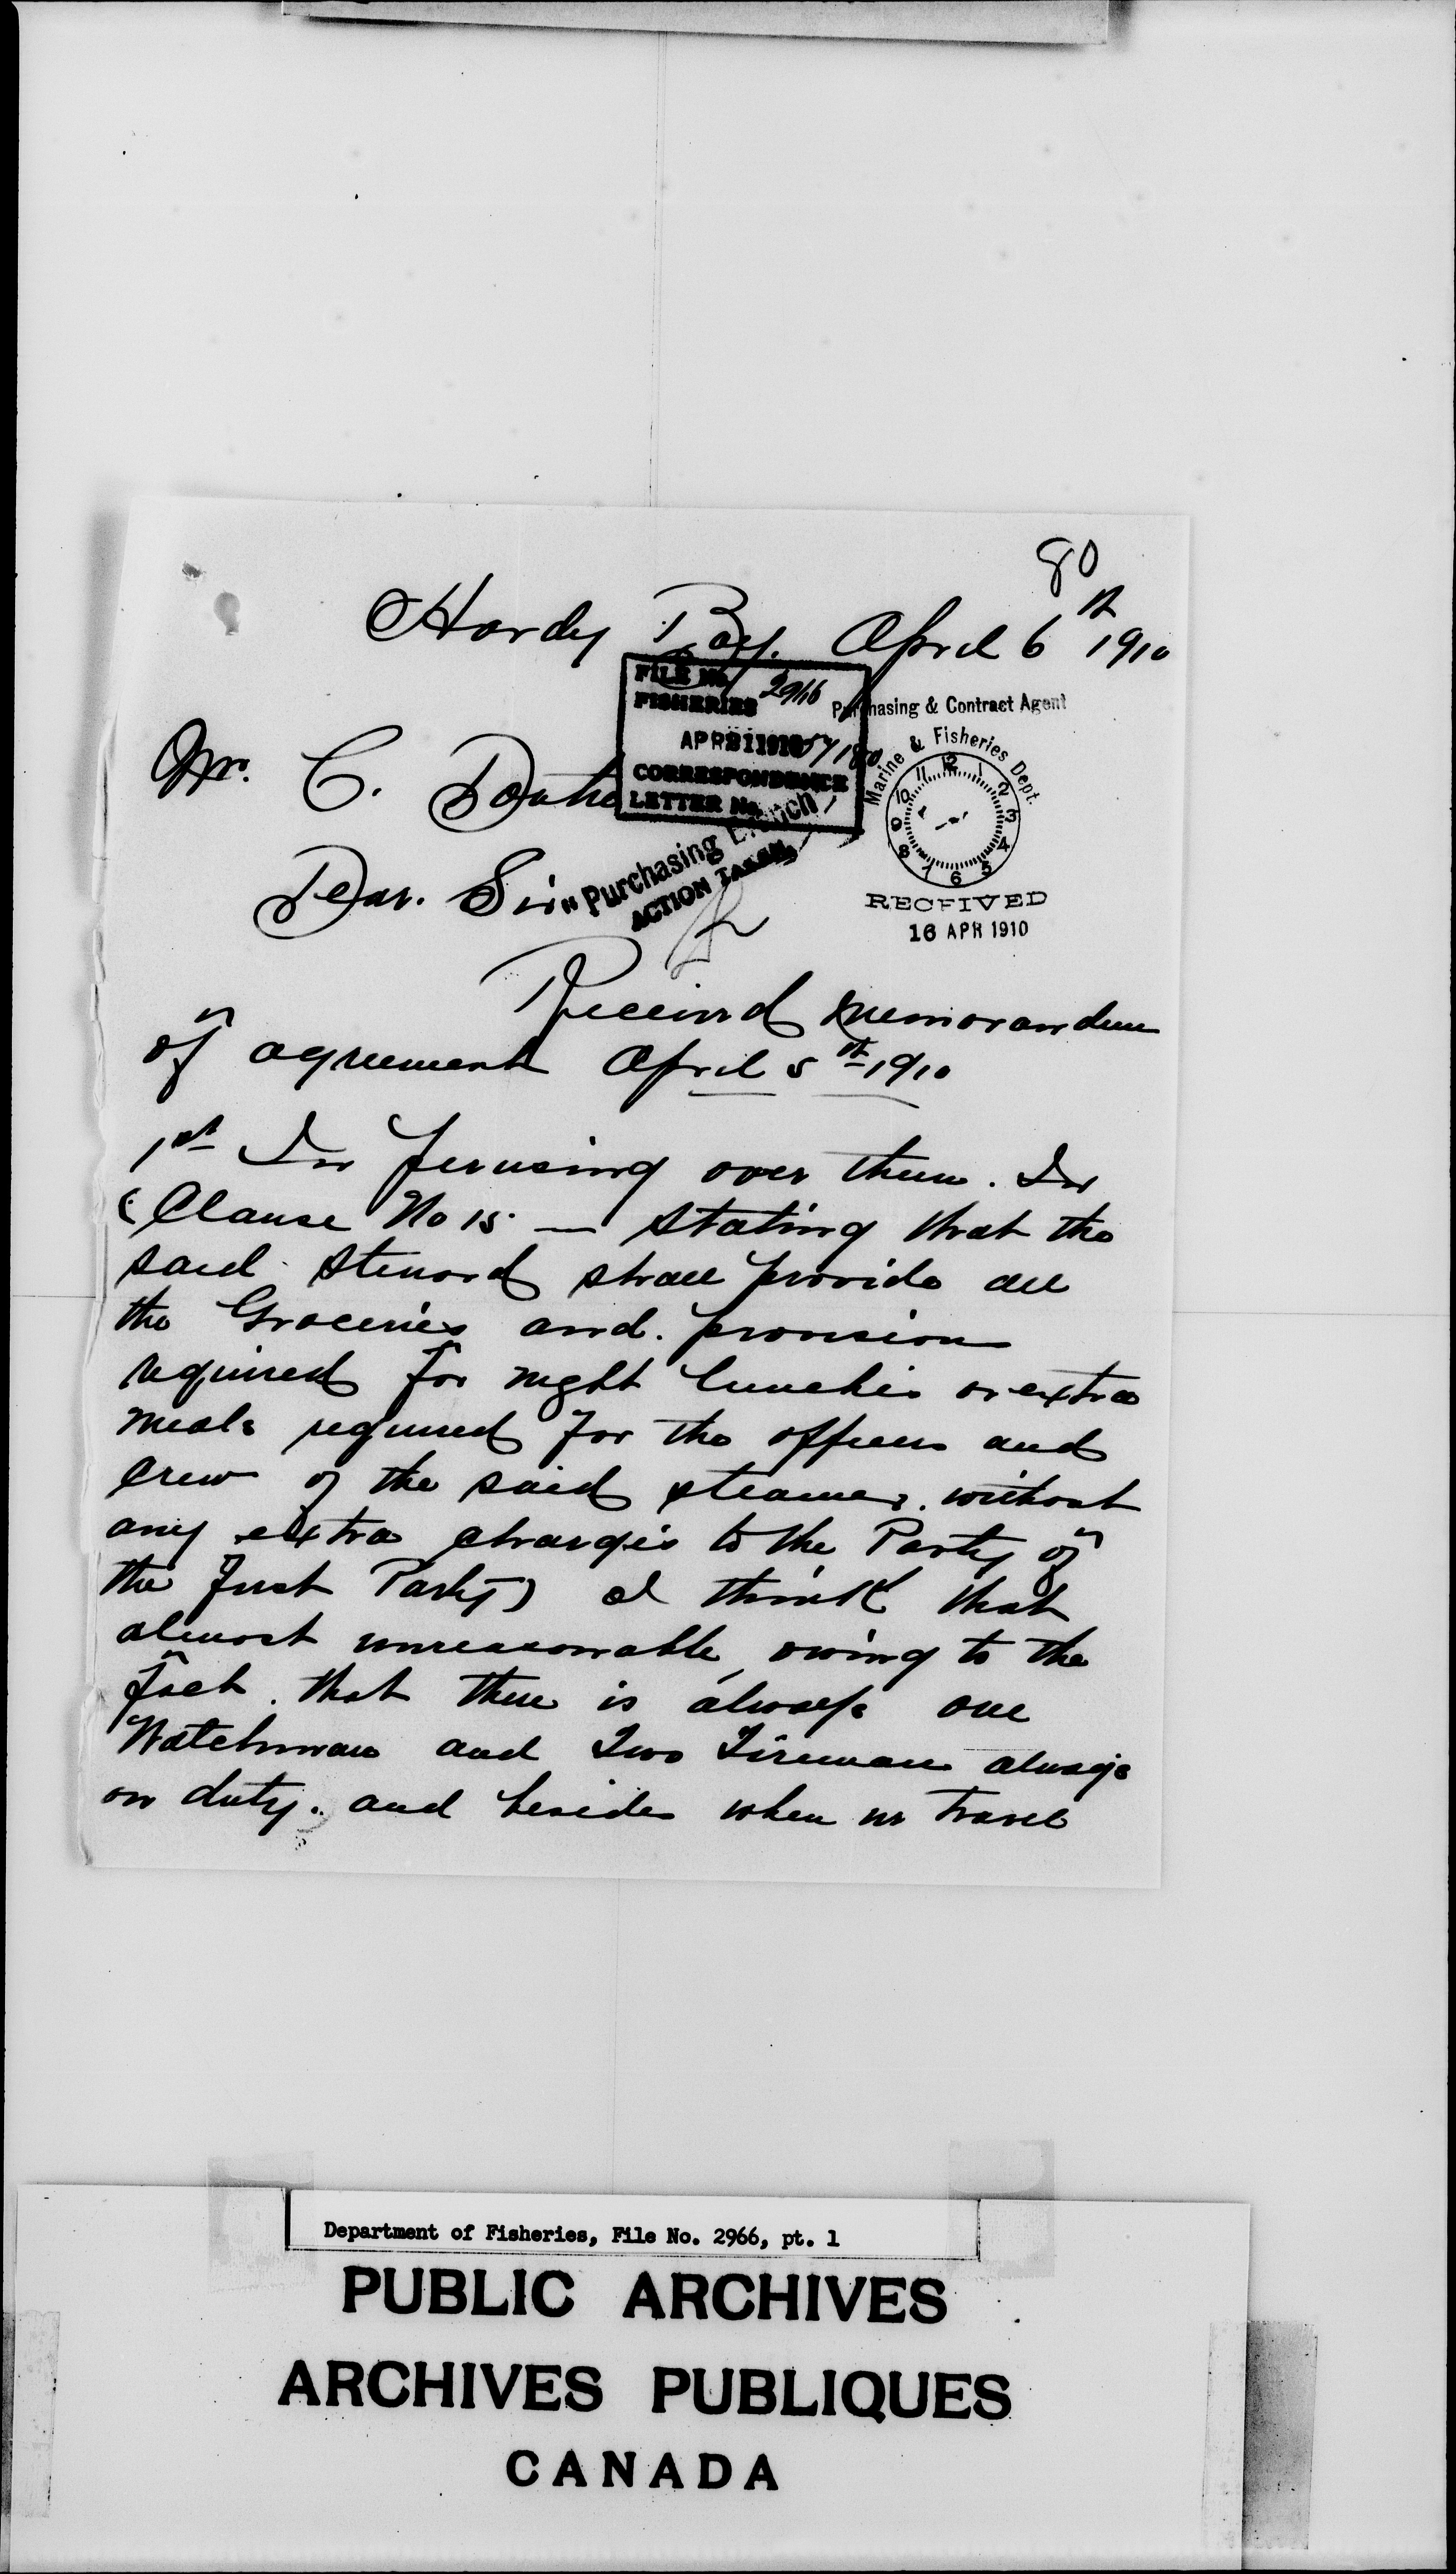 80
Hardy Bay. April 6th 1910
FILE No. 2966
FISHERIES
Purchasing & Contract Agent
APR 21 1910 57180
CORRESPONDENCE
LETTER No.
Marine & Fisheries Dept.
12 1 2 3 4 5 6 7 8 9 10 11
RECEIVED
16 APR 1910
Mr. C.
Dear. Sir"
Purchasing Branch
ACTION TAKEN
Received memorandum
of agreement April 5th 1910
1st In perusing over them. In
(Clause No 15 — stating that the
said steward shall provide all
the Groceries and. provision
required for night lunches or extra
meals required for the officers and
crew of the said steamer. without
any extra charges to the Party of
the First Party) I think that
almost unreasonable, owing to the
fact. that there is always one
Watchman and Two Fireman always
on duty. and besides when we travel
Department of Fisheries, File No. 2966, pt. 1
PUBLIC ARCHIVES
ARCHIVES PUBLIQUES
CANADA